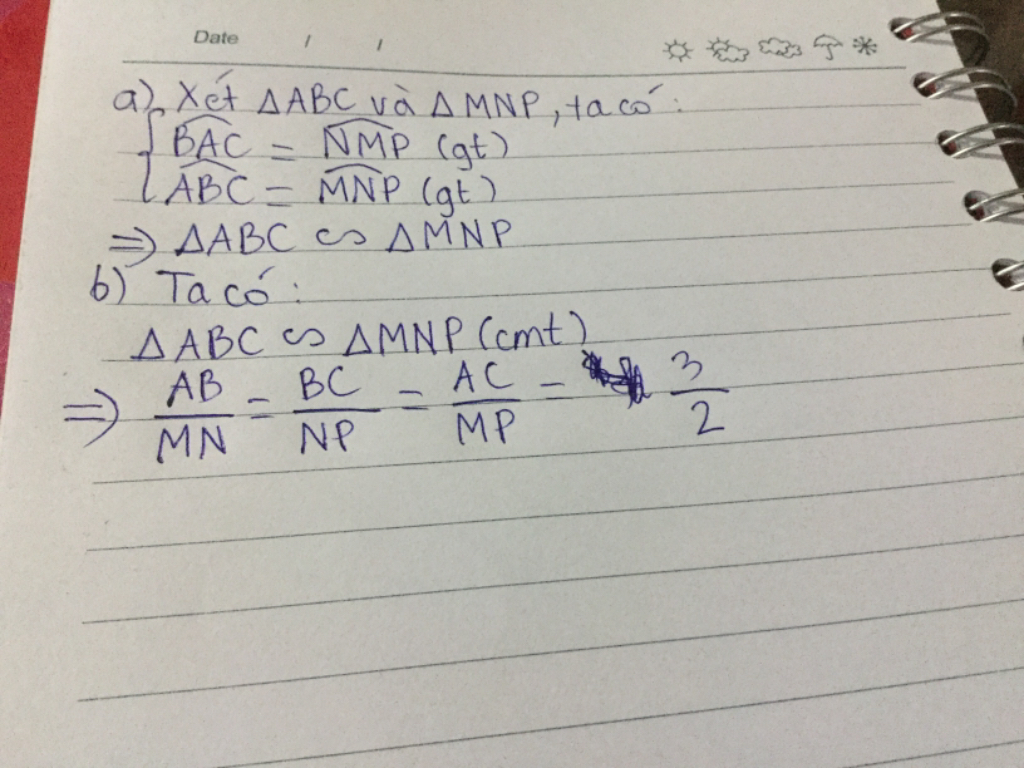 Date / /
a) Xét ΔABC và ΔMNP, ta có:
{ \widehat{BAC} = \widehat{NMP} (gt)
\widehat{ABC} = \widehat{MNP} (gt)
=> ΔABC ∽ ΔMNP
b) Ta có:
ΔABC ∽ ΔMNP (cmt)
=> AB/MN = BC/NP = AC/MP = 3/2